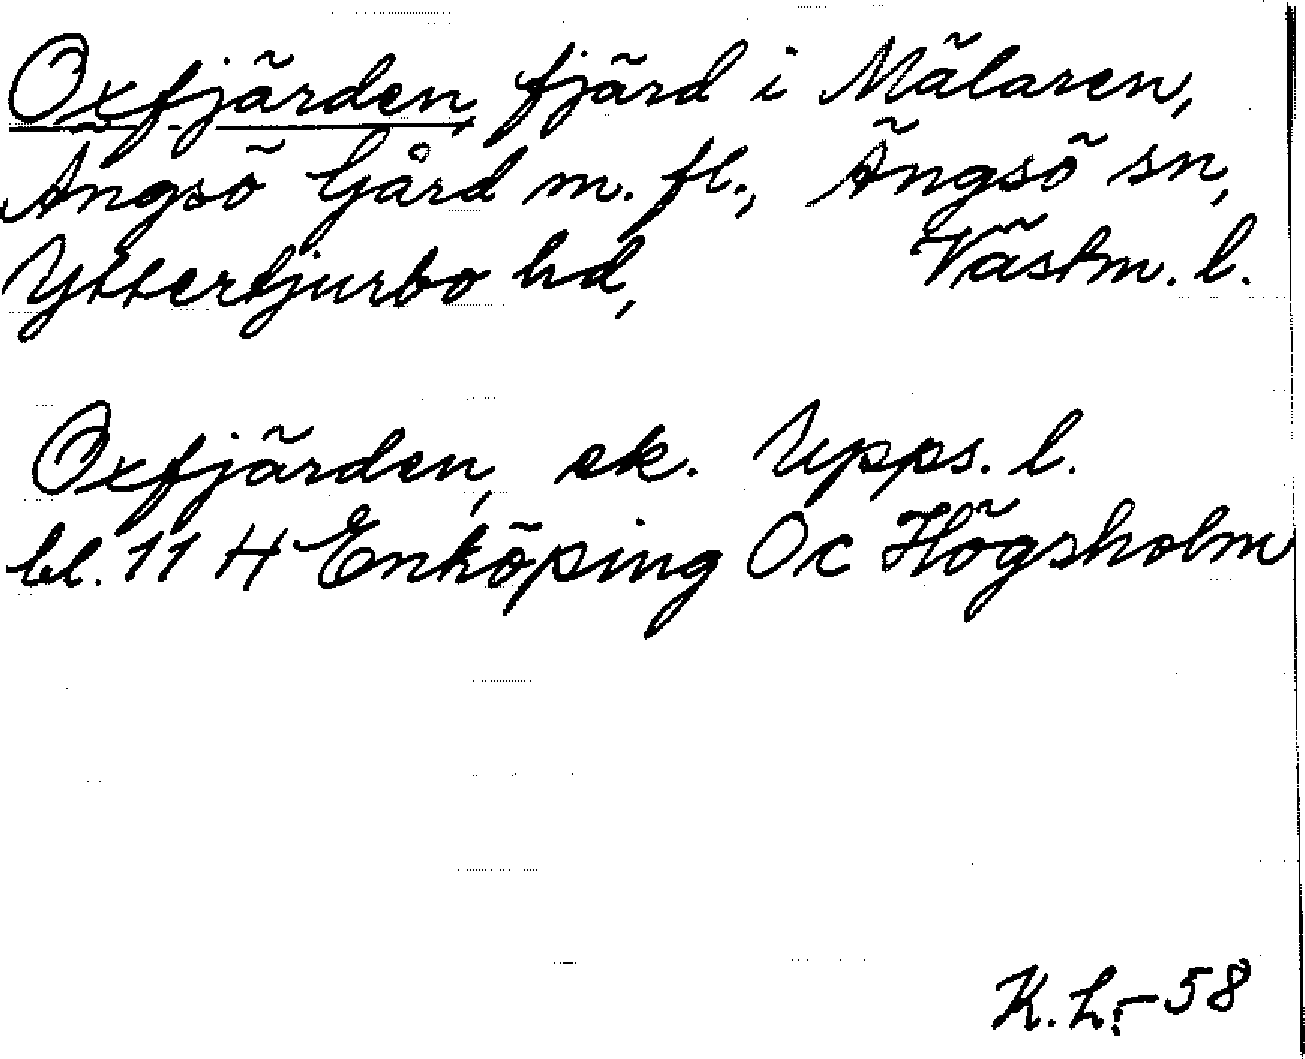 Oxfjärden, fjärd i Mälaren,
Ängsö Gård m. fl., Ängsö sn,
Yttertjurbo hd, Västm. l.
Oxfjärden, ek. Upps. l.
bl. 11 H Enköping Oc Högsholm
K. L. -58